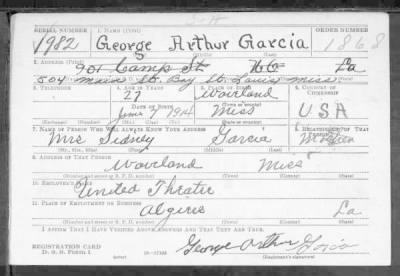 SERIAL NUMBER 1. NAME (Print) ORDER NUMBER
1982 George Arthur Garcia 1868
2. ADDRESS (Print)
901 Camp St N O La
504 Main St. Bay St. Louis Miss
3. TELEPHONE 4. AGE IN YEARS 5. PLACE OF BIRTH 6. COUNTRY OF CITIZENSHIP
27 Waveland
DATE OF BIRTH
June 1914 Miss USA
7. NAME OF PERSON WHO WILL ALWAYS KNOW YOUR ADDRESS 8. RELATIONSHIP OF THAT PERSON
Mrs Sidney Garcia Mother
9. ADDRESS OF THAT PERSON
Waveland Miss
10. EMPLOYER'S NAME
United Theatre
11. PLACE OF EMPLOYMENT OR BUSINESS
Algiers La
I AFFIRM THAT I HAVE VERIFIED ABOVE ANSWERS AND THAT THEY ARE TRUE.
REGISTRATION CARD
D. S. S. Form 1
George Arthur Garcia
(Registrant's signature)